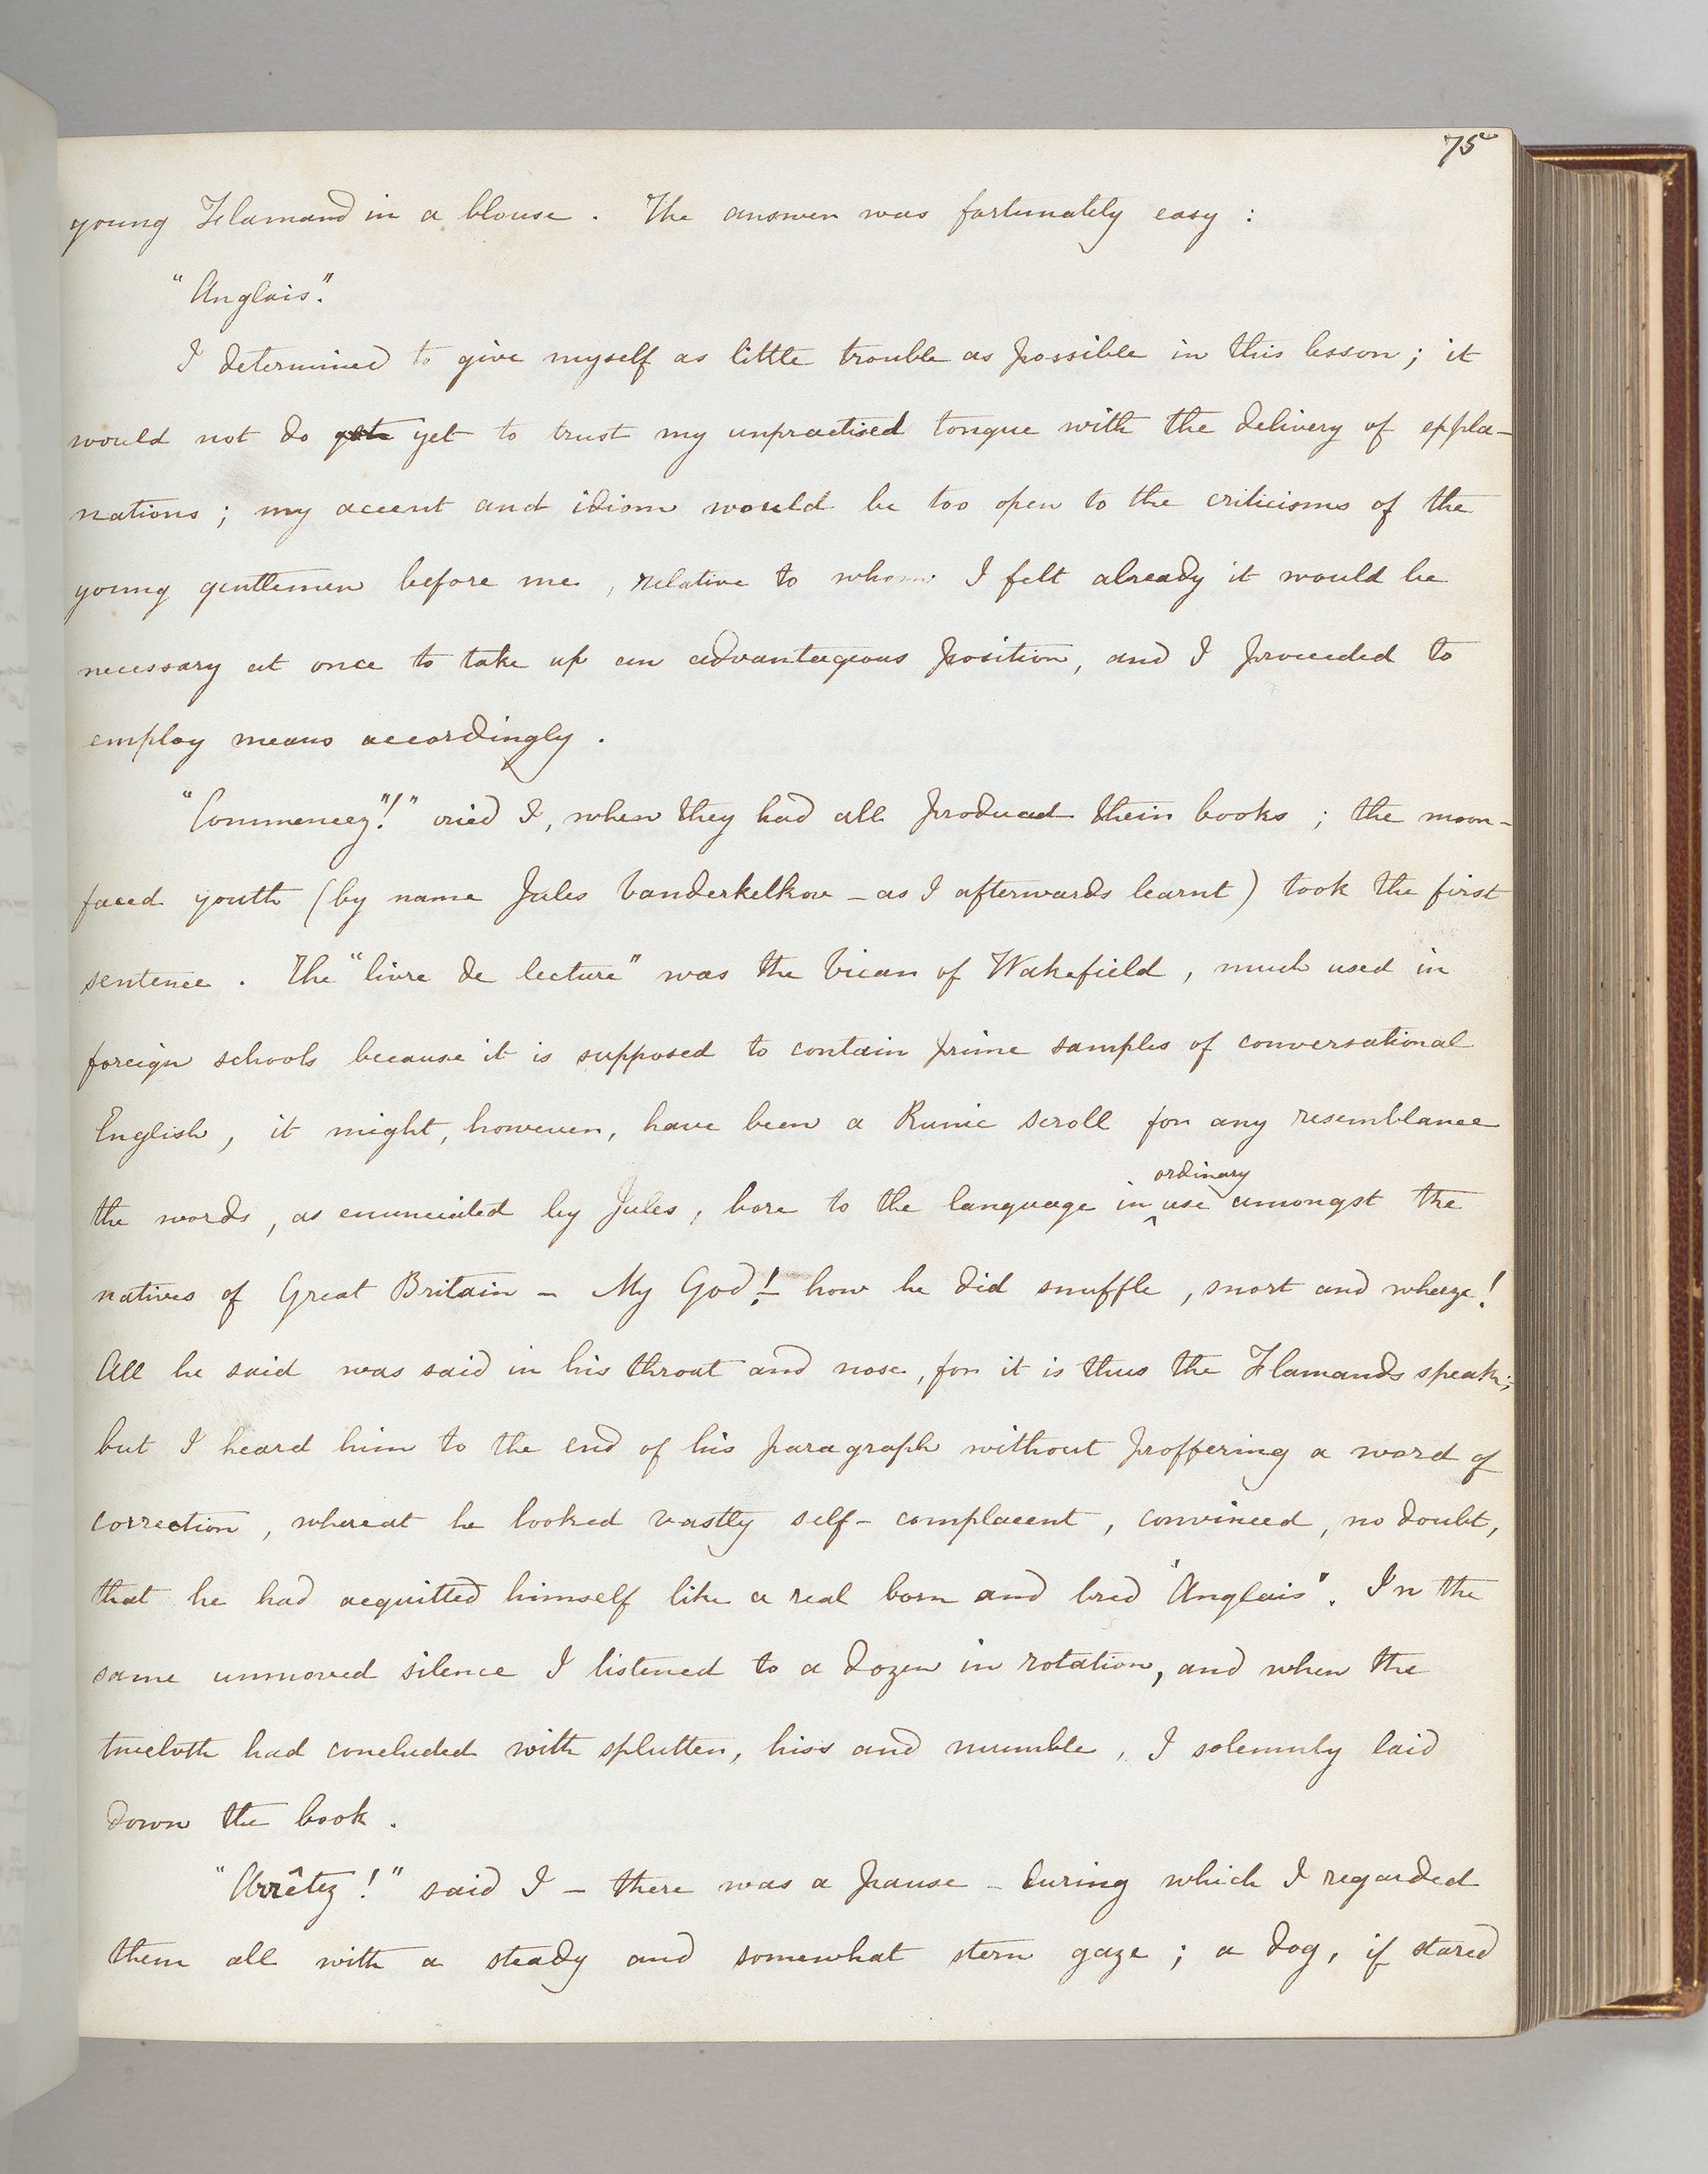 75
young Flamand in a blouse. The answer was fortunately easy:
"Anglais."
I determined to give myself as little trouble as possible in this lesson; it
would not do yet to trust my unpractised tongue with the delivery of expla-
nations; my accent and idiom would be too open to the criticisms of the
young gentlemen before me, relative to whom I felt already it would be
necessary at once to take up an advantageous position, and I proceeded to
employ means accordingly.
"Commencez"!" cried I, when they had all produced their books; the moon-
faced youth (by name Jules Vanderkelkov – as I afterwards learnt) took the first
sentence. The "livre de lecture" was the Vicar of Wakefield, much used in
foreign schools because it is supposed to contain prime samples of conversational
English, it might, however, have been a Runic scroll for any resemblance
the words, as enunciated by Jules, bore to the language in ordinary use amongst the
natives of Great Britain – My God! how he did snuffle, snort and wheeze!
All he said was said in his throat and nose, for it is thus the Flamands speak;
but I heard him to the end of his paragraph without proffering a word of
correction, whereat he looked vastly self-complacent, convinced, no doubt,
that he had acquitted himself like a real born and bred "Anglais". In the
same unmoved silence I listened to a dozen in rotation, and when the
twelvth had concluded with splutter, hiss and mumble, I solemnly laid
down the book.
"Arrêtez!" said I – there was a pause – during which I regarded
them all with a steady and somewhat stern gaze; a dog, if stared